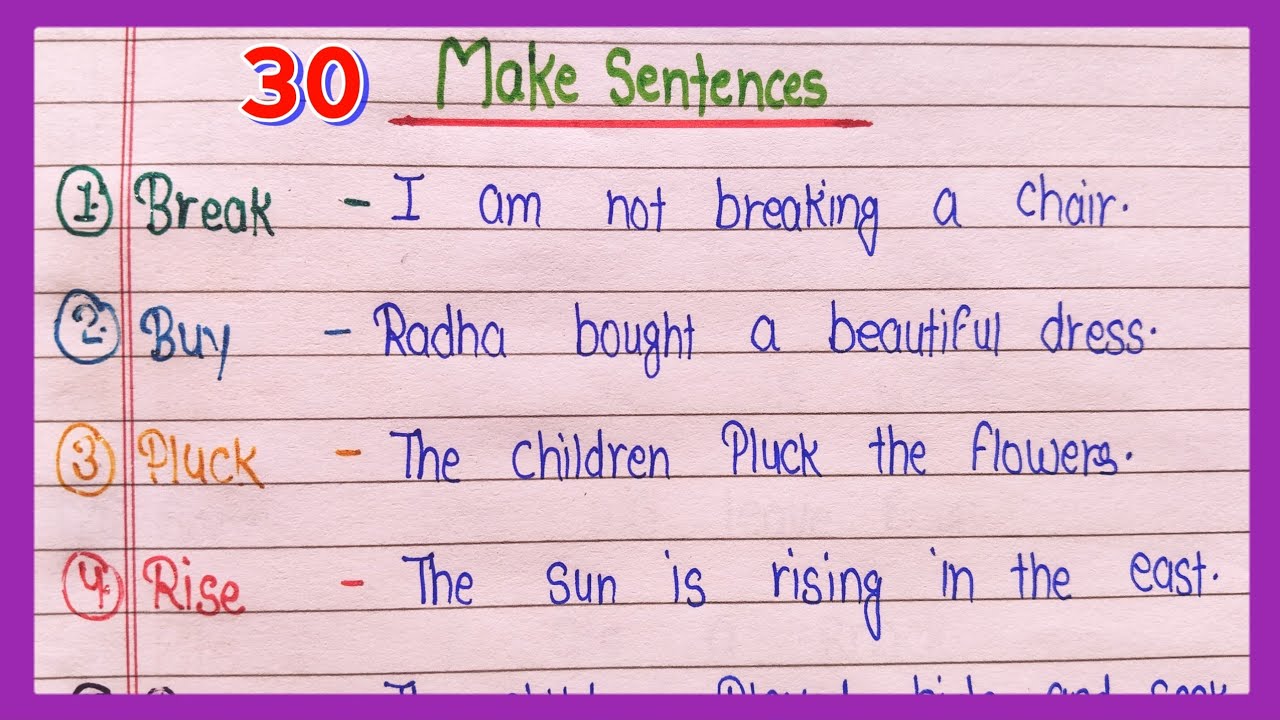 30 Make Sentences
1. Break - I am not breaking a chair.
2. Buy - Radha bought a beautiful dress.
3 Pluck - The children Pluck the flowers.
4. Rise - The sun is rising in the east.
and seek